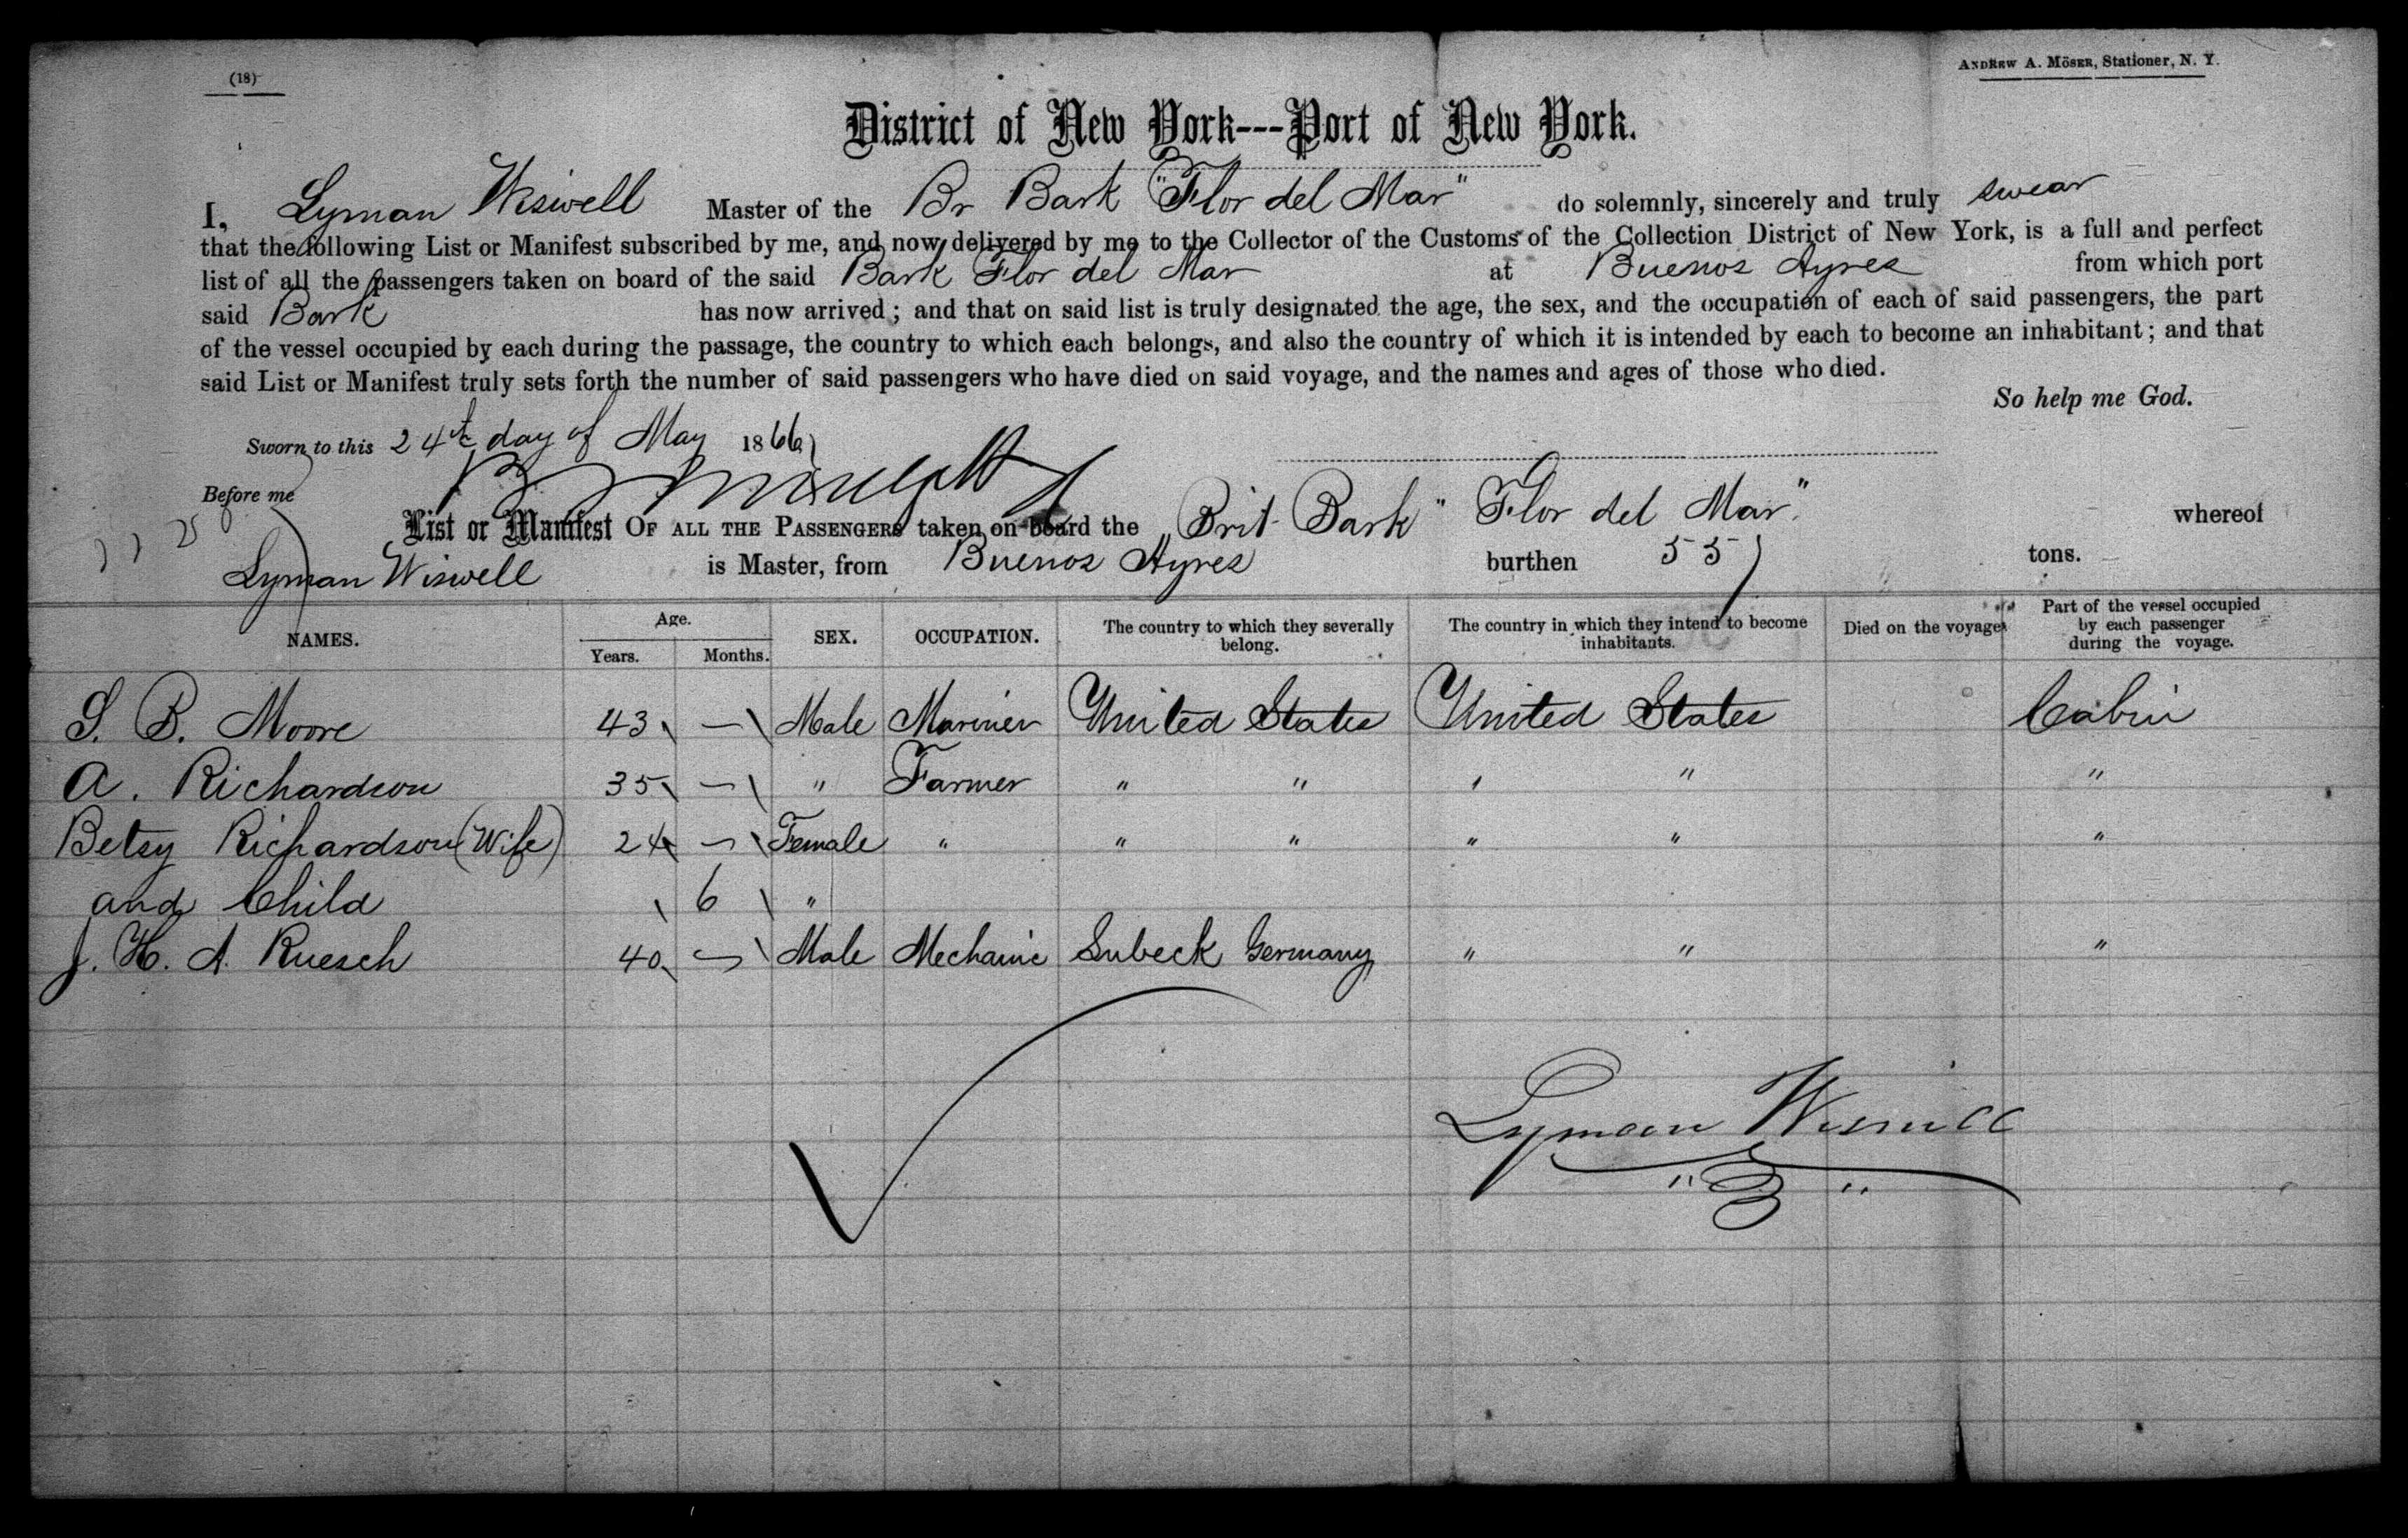 (18)
ANDREW A. MÖSER, Stationer, N. Y.
District of New York---Port of New York.
I, Lyman Wiswell Master of the Br Bark "Flor del Mar" do solemnly, sincerely and truly swear
that the following List or Manifest subscribed by me, and now delivered by me to the Collector of the Customs of the Collection District of New York, is a full and perfect
list of all the passengers taken on board of the said Bark Flor del Mar at Buenos Ayres from which port
said Bark has now arrived; and that on said list is truly designated the age, the sex, and the occupation of each of said passengers, the part
of the vessel occupied by each during the passage, the country to which each belongs, and also the country of which it is intended by each to become an inhabitant; and that
said List or Manifest truly sets forth the number of said passengers who have died on said voyage, and the names and ages of those who died.
So help me God.
Sworn to this 24th day of May 1866
Before me
List or Manifest OF ALL THE PASSENGERS taken on board the Brit Bark "Flor del Mar" whereof
Lyman Wiswell is Master, from Buenos Ayres burthen 557 tons.
NAMES. Age. Years. Months. SEX. OCCUPATION. The country to which they severally belong. The country in which they intend to become inhabitants. Died on the voyage. Part of the vessel occupied by each passenger during the voyage.
S. B. Moore 43 — Male Mariner United States United States Cabin
A. Richardson 35 — " Farmer " " " " "
Betsy Richardson (Wife) 24 — Female " " " " " "
and Child 6 "
J. H. A. Ruesch 40 — Male Mechanic Lubeck Germany " " "
Lyman Wiswell